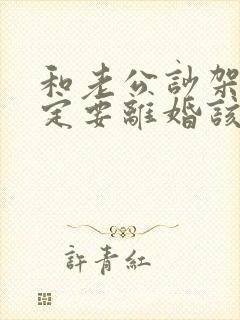 和老公討架
定要離婚該
許青紅